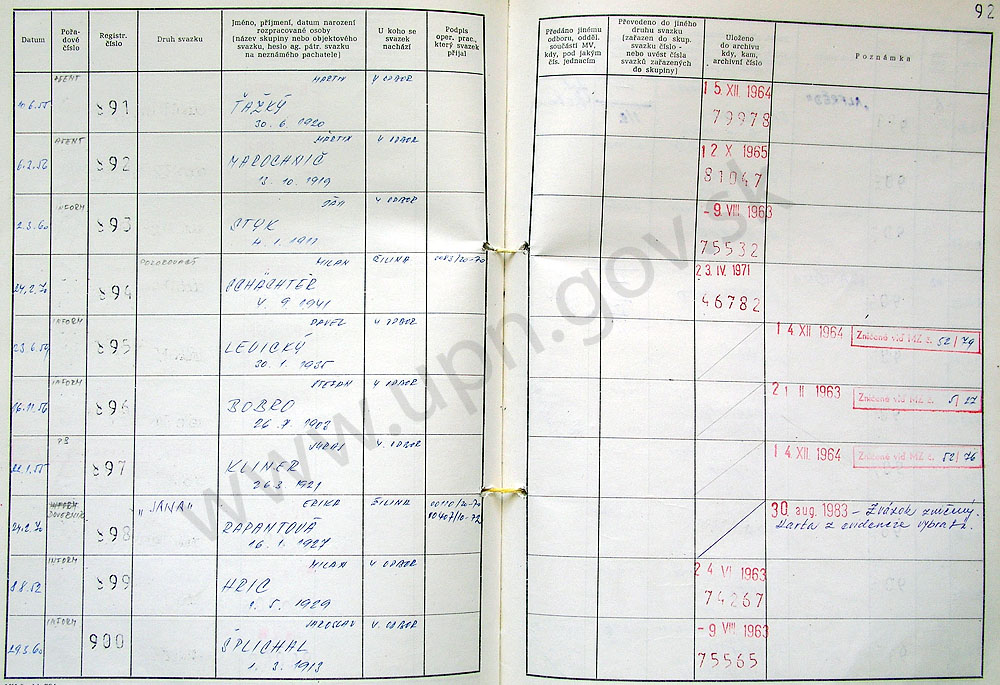 92
Datum
Pořadové číslo
Registr. číslo
Druh svazku
Jméno, příjmení, datum narození rozpracované osoby (název skupiny nebo objektového svazku, heslo ag. pátr. svazku na neznámého pachatele)
U koho se svazek nachází
Podpis oper. prac., který svazek přijal
Předáno jinému odboru, odděl. součásti MV, kdy, pod jakým čís. jednacím
Převedeno do jiného druhu svazku (zařazen do skup. svazku číslo - nebo uvést čísla svazků zařazených do skupiny)
Uloženo do archivu kdy, kam, archivní číslo
Poznámka
AGENT
MARTIN
V. ODBOR
891
ŤAŽKÝ
30. 6. 1920
15. XII. 1964
79978
"ALFRÉD"
6.2.56
AGENT
892
MARTIN
V. ODBOR
13. 10. 1919
12. X. 1965
81047
2.3.60
INFORM
893
JÁN
V. ODBOR
STYK
- 9. VIII 1963
75532
24.2.70
894
POZOROVAŇ
MILAN
ŽILINA
0083/20-70
SCHÄCHTER
4. 9. 1941
23. IV. 1971
46782
23.6.59
INFORM
895
PAVEL
V. ODBOR
LEVICKÝ
30. 1. 1935
14 XII 1964
Zničené viď MZ č. 52/79
16.11.56
INFORM
896
ŠTEFAN
V. ODBOR
BOBRO
21 II 1963
Zničené viď MZ č. 5/27
897
JURAJ
V. ODBOR
KLINER
26.3. 1921
14 XII. 1964
Zničené viď MZ č. 52/76
24.2.70
DÔVERNÍK
898
"JANA"
ERIKA
ŽILINA
00110/20-70
00407/10-72
RAPANTOVÁ
16. 1. 1927
30 aug. 1983 - Zväzok zničený.
Karta z evidencie vybratá.
8.8.52
INFORM
899
MILAN
V. ODBOR
HRIC
1. 5. 1929
24 VI 1963
74267
29.3.60
INFORM
900
JAROSLAV
V. ODBOR
ŠPLICHAL
1. 3. 1913
- 9 VIII 1963
75565
www.upn.gov.sk